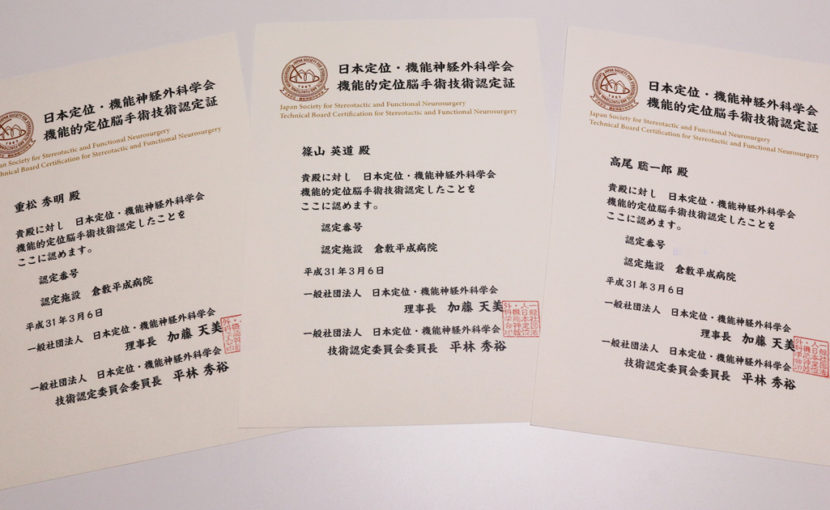 日本定位・機能神経外科学会
機能的定位脳手術技術認定証
an Society for Stereotactic and Functional Neurosurgery
Technical Board Certification for Stereotactic and Functional Neurosurgery
重松 秀明 殿
貴殿に対し 日本定位・機能神経外科学会
機能的定位脳手術技術認定したことを
ここに認めます。
認定番号
認定施設 倉敷平成病院
平成31年3月6日
一般社団法人 日本定位・機能神経外科学会
理事長 加藤 天美
一般社団法人 日本定位・機能神経外科学会
技術認定委員会委員長 平林 秀裕
日本定位・機能神経外科学会
機能的定位脳手術技術認定証
Japan Society for Stereotactic and Functional Neurosurgery
Technical Board Certification for Stereotactic and Functional Neurosurgery
篠山 英道 殿
貴殿に対し 日本定位・機能神経外科学会
機能的定位脳手術技術認定したことを
ここに認めます。
認定番号
認定施設 倉敷平成病院
平成31年3月6日
一般社団法人 日本定位・機能神経外科学会
理事長 加藤 天美
一般社団法人 日本定位・機能神経外科学会
技術認定委員会委員長 平林 秀裕
日本定位・機能神経外科学会
機能的定位脳手術技術認定証
Japan Society for Stereotactic and Functional Neurosurgery
Technical Board Certification for Stereotactic and Functional Neurosurgery
高尾 聡一郎 殿
貴殿に対し 日本定位・機能神経外科学会
機能的定位脳手術技術認定したことを
ここに認めます。
認定番号
認定施設 倉敷平成病院
平成31年3月6日
一般社団法人 日本定位・機能神経外科学会
理事長 加藤 天美
一般社団法人 日本定位・機能神経外科学会
技術認定委員会委員長 平林 秀裕